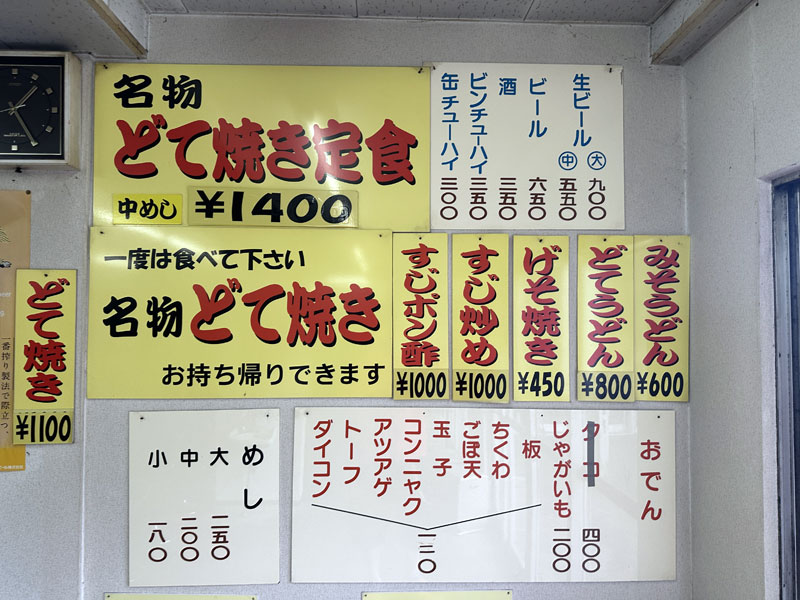 名物
どて焼き定食
中めし ¥1400円
生ビール 大 九〇〇
中 五五〇
ビール 六五〇
酒 三五〇
ビンチューハイ 三五〇
缶チューハイ 三〇〇
一度は食べて下さい
名物どて焼き
お持ち帰りできます
みそうどん
¥600
どてうどん
¥800
げそ焼き
¥450
すじ炒め
¥1000
すじポン酢
¥1000
どて焼き
¥1100
一番搾り製法で際立つ、
おでん
タコ 四〇〇
じゃがいも 二〇〇
板
ちくわ
ごぼ天
玉子
コンニャク
アツアゲ
トーフ
ダイコン
一二〇
めし
大 二五〇
中 二〇〇
小 一八〇